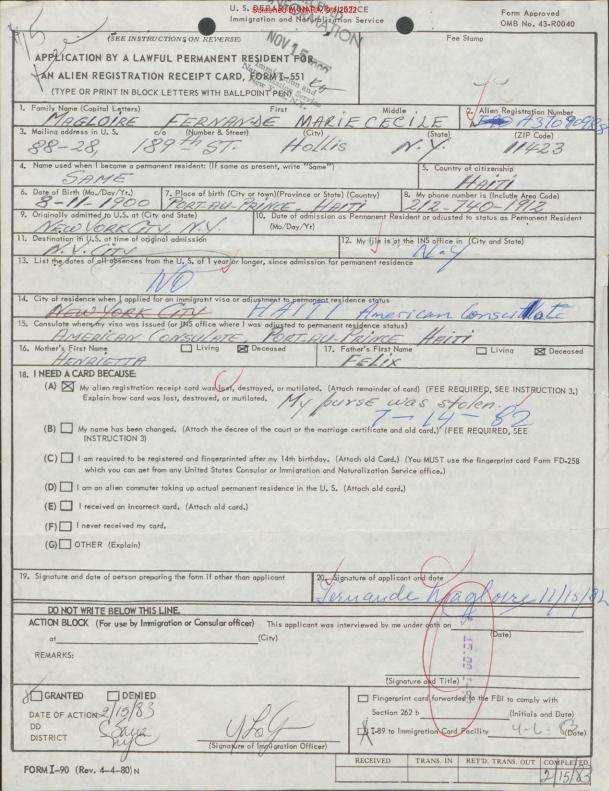 U. S. DEPARTMENT OF JUSTICE
Screened by NARA, 9/1/2022
Immigration and Naturalization Service
Form Approved
OMB No. 43-R0040
(SEE INSTRUCTIONS ON REVERSE)
Fee Stamp
NOV 15
APPLICATION BY A LAWFUL PERMANENT RESIDENT FOR
AN ALIEN REGISTRATION RECEIPT CARD, FORM I-551
(TYPE OR PRINT IN BLOCK LETTERS WITH BALLPOINT PEN)
1. Family Name (Capital Letters) First Middle
MAGLOIRE FERNANDE MARIE CECILE
2. Alien Registration Number
3. Mailing address in U. S. c/o (Number & Street) (City) (State) (ZIP Code)
88-28, 189th ST. Hollis N.Y. 11423
4. Name used when I became a permanent resident: (If same as present, write "Same")
SAME
5. Country of citizenship
HAITI
6. Date of Birth (Mo./Day/Yr.)
8-11-1900
7. Place of birth (City or town) (Province or State) (Country)
PORT-AU-PRINCE, HAITI
8. My phone number is (Include Area Code)
212-740-1912
9. Originally admitted to U.S. at (City and State)
NEW YORK CITY, N.Y.
10. Date of admission as Permanent Resident or adjusted to status as Permanent Resident
(Mo/Day/Yr)
11. Destination in U.S. at time of original admission
N.Y. CITY
12. My file is at the INS office in (City and State)
N.Y
13. List the dates of all absences from the U.S. of 1 year or longer, since admission for permanent residence
NO
14. City of residence when I applied for an immigrant visa or adjustment to permanent residence status
NEW YORK CITY HAITI American Consulate
15. Consulate where my visa was issued (or INS office where I was adjusted to permanent residence status)
AMERICAN CONSULATE PORT-AU-PRINCE HAITI
16. Mother's First Name Living Deceased
HENRIETTA
17. Father's First Name Living Deceased
FELIX
18. I NEED A CARD BECAUSE:
(A) My alien registration receipt card was lost, destroyed, or mutilated. (Attach remainder of card) (FEE REQUIRED, SEE INSTRUCTION 3.)
Explain how card was lost, destroyed, or mutilated.
My purse was stolen.
7-14-82
(B) My name has been changed. (Attach the decree of the court or the marriage certificate and old card.) (FEE REQUIRED, SEE
INSTRUCTION 3)
(C) I am required to be registered and fingerprinted after my 14th birthday. (Attach old Card.) (You MUST use the fingerprint card Form FD-258
which you can get from any United States Consular or Immigration and Naturalization Service office.)
(D) I am an alien commuter taking up actual permanent residence in the U. S. (Attach old card.)
(E) I received an incorrect card. (Attach old card.)
(F) I never received my card.
(G) OTHER (Explain)
19. Signature and date of person preparing the form if other than applicant
20. Signature of applicant and date
Fernande Magloire 11/15/82
DO NOT WRITE BELOW THIS LINE.
ACTION BLOCK (For use by Immigration or Consular officer) This applicant was interviewed by me under oath on
(Date)
at (City)
REMARKS:
(Signature and Title)
GRANTED DENIED
DATE OF ACTION 2/15/83
DD
DISTRICT
NYC
(Signature of Immigration Officer)
Fingerprint card forwarded to the FBI to comply with
Section 262 b (Initials and Date)
I-89 to Immigration Card Facility (Date)
RECEIVED TRANS. IN RET'D. TRANS. OUT COMPLETED
2/15/83
FORM I-90 (Rev. 4-4-80) N